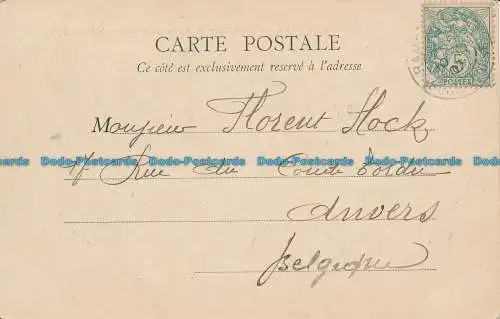 CARTE POSTALE
Ce côté est exclusivement reservé à l'adresse
5
POSTES
Monsieur Florent Hock
17 Rue du Comte
Anvers
Belgique
Dodo-Postcards Dodo-Postcards Dodo-Postcards Dodo-Postcards Dodo-Postcards Dodo-Postcards